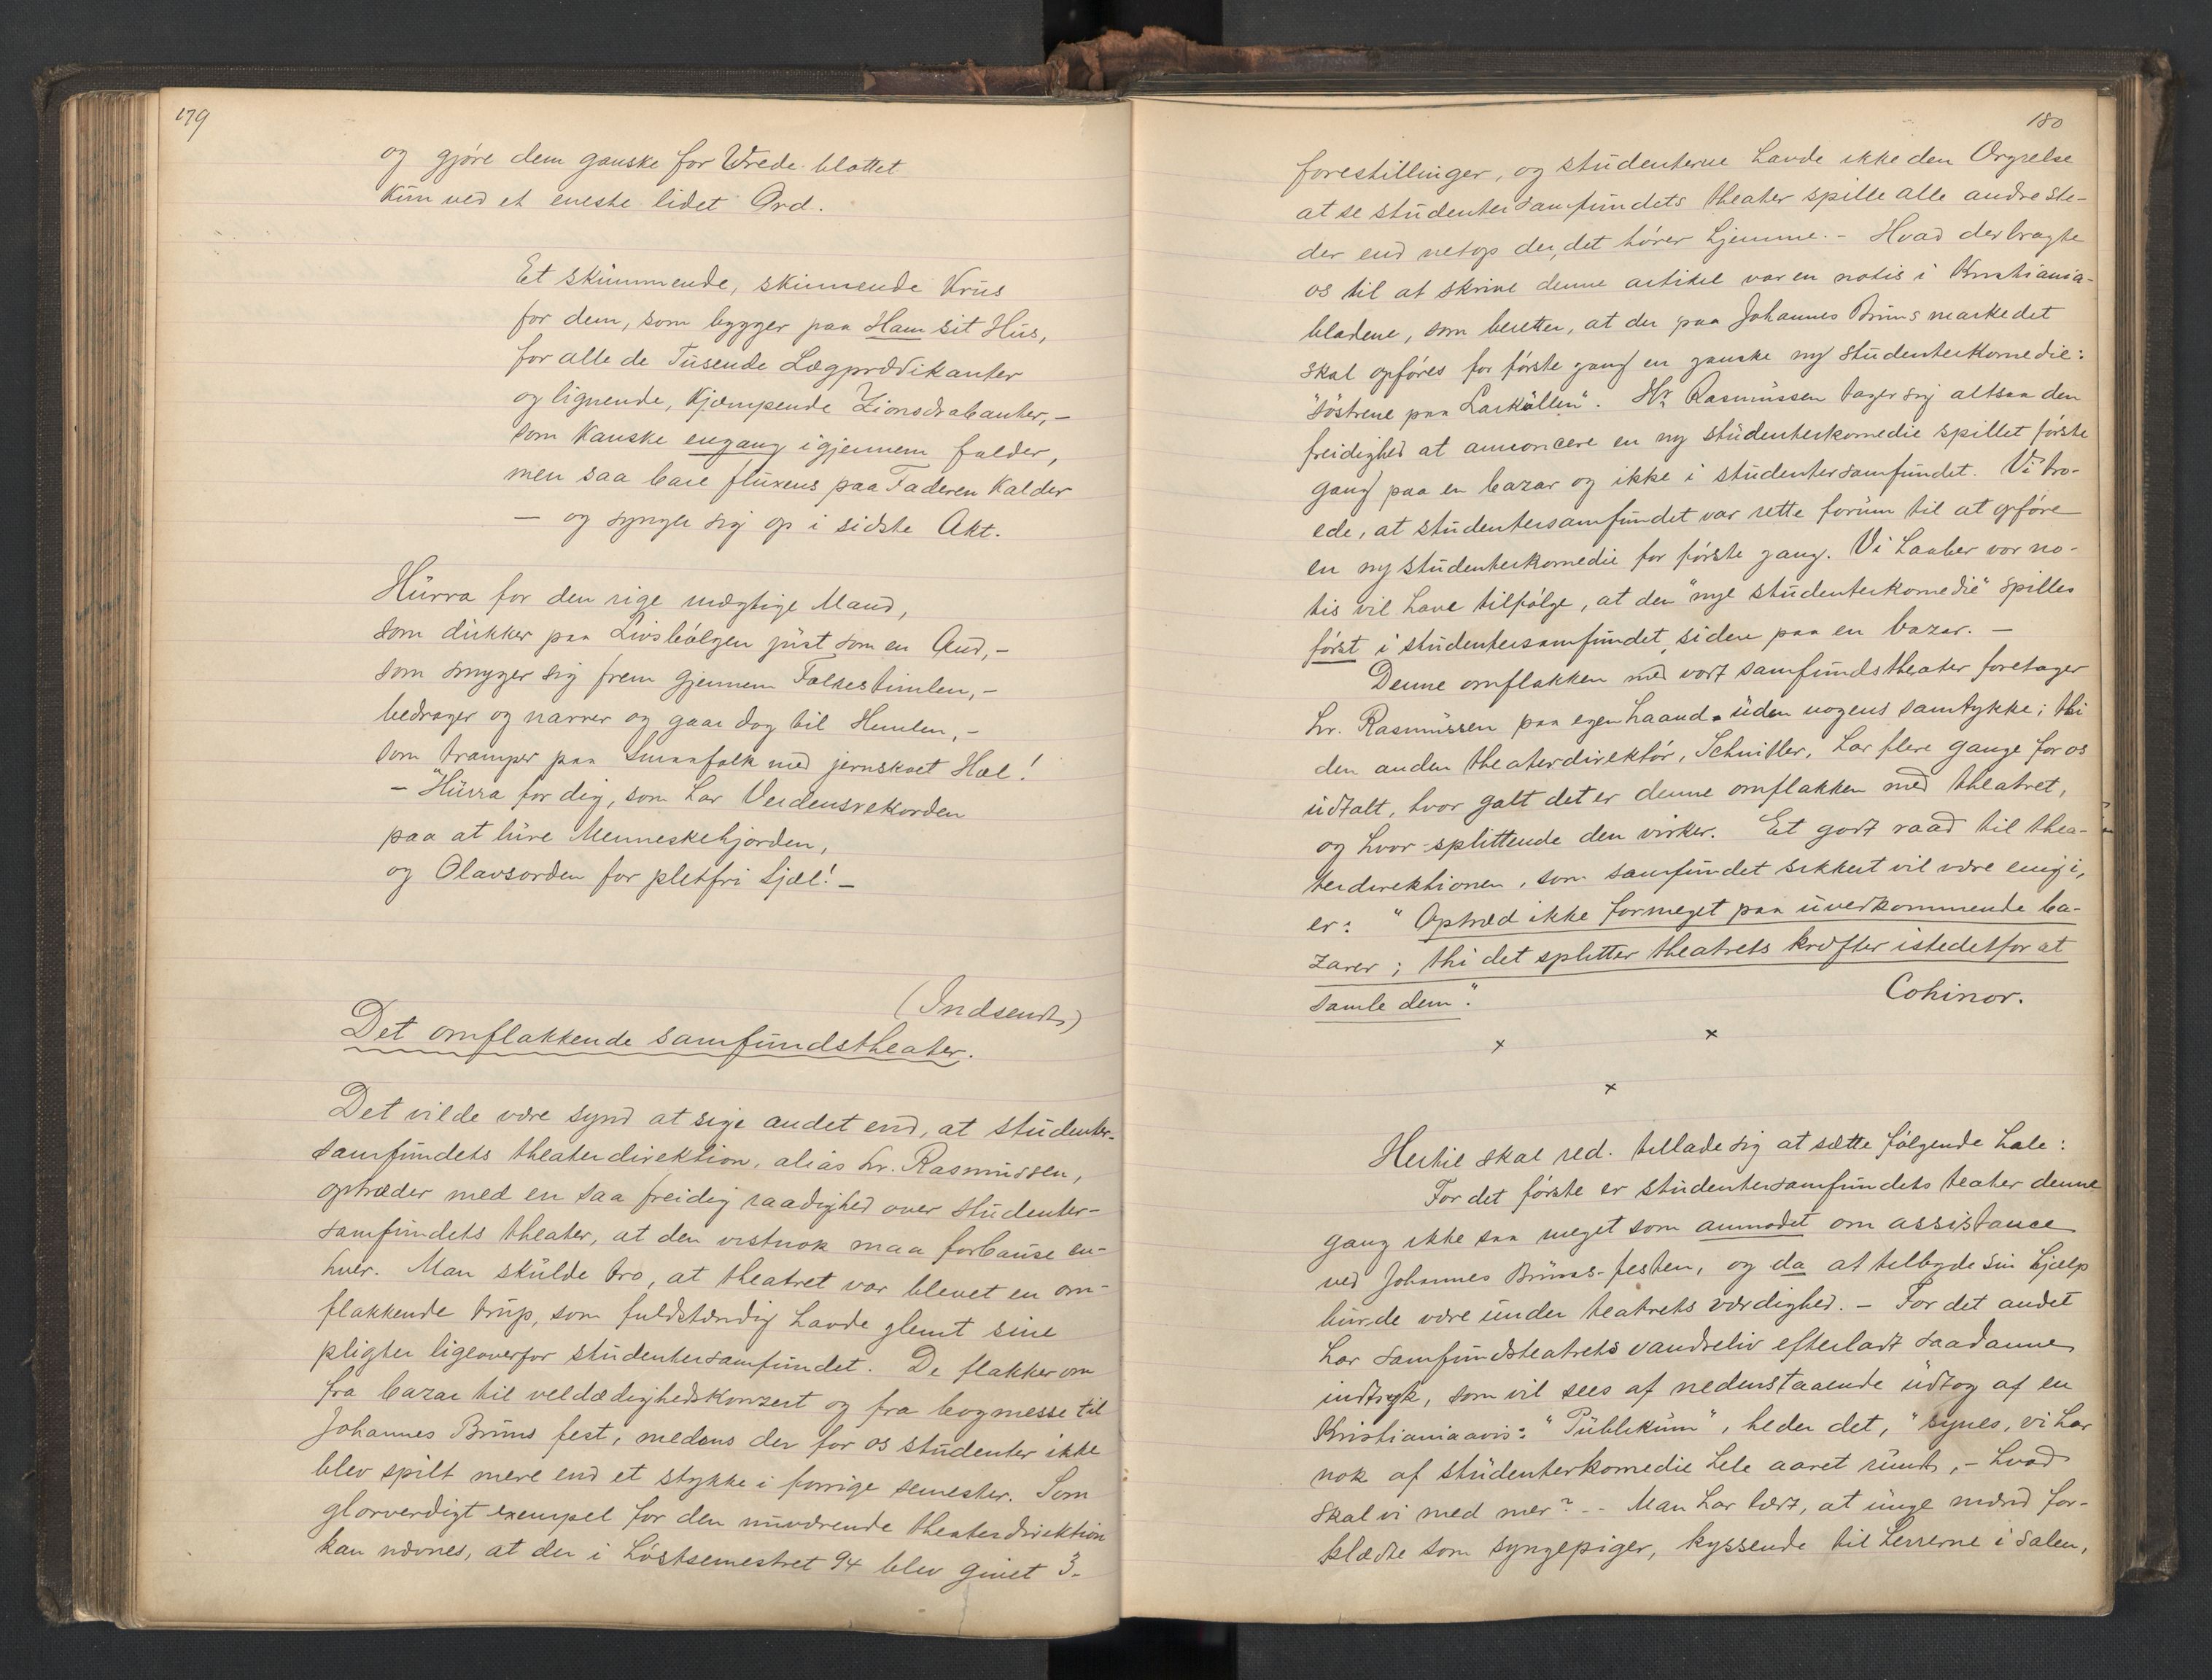 179
og gjøre dem ganske for Vrede blottet
kun ved et eneste lidet Ord.
Et skummende, skinnende Krus
for dem, som bygger paa Ham sit Hus,
for alle de Tusende Lægprædikanter
og lignende, kjæmpende Zionsdrabanter, –
som kanske engang igjennem falder,
men saa bare fluxens paa Faderen kalder
– og synger sig op i sidste Akt.
Hurra for den rige mægtige Mand,
som dukker paa Livsbølgen just som en And, –
som smyger sig frem gjennem Folkestimlen, –
bedrager og narrer og gaar dog til Himlen, –
som tramper paa Smaafolk med jernskoet Hæl!
– "Hurra for dig, som har Verdensrekorden
paa at lure Menneskehjorden,
og Olavsorden for pletfri Sjæl! –
(Indsendt)
Det omflakkende samfundstheater.
Det vilde være synd at sige andet end, at studenter-
samfundets theaterdirektion, alias hr. Rasmussen,
optræder med en saa freidig raadighed over studenter-
samfundets theater, at den vistnok maa forbause en-
hver. Man skulde tro, at theatret var blevet en om-
flakkende trup, som fuldstændig havde glemt sine
pligter ligeoverfor studentersamfundet. De flakker om
fra bazar til veldædighedskonzert og fra bogmesse til
Johannes Bruns fest, medens der for os studenter ikke
blev spilt mere end et stykke i forrige semester. Som
glorverdigt exempel for den nuværende theaterdirektion
kan nævnes, at der i høstsemestret 94 blev givet 3
180
forestillinger, og studenterne havde ikke den Ærgrelse
at se studentersamfundets theater spille alle andre ste-
der end netop der, det hører hjemme. – Hvad der bragte
os til at skrive denne artikel var en notis i Kristiania-
bladene, som beretter, at der paa Johannes Bruns markedet
skal opføres for første gang en ganske ny studenterkomedie:
"Søstrene paa Larkøllen". Hr. Rasmussen tager sig altsaa den
freidighed at annoncere en ny studenterkomedie spillet første
gang paa en bazar og ikke i studentersamfundet. Vi tro-
ede, at studentersamfundet var rette forum til at opføre
en ny studenterkomedie for første gang. Vi haaber vor no-
tis vil have tilfølge, at den "nye studenterkomedie" spilles
først i studentersamfundet, siden paa en bazar. –
Denne omflakken med vort samfundstheater foretager
hr. Rasmussen paa egen haand uden nogens samtykke; thi
den anden theaterdirektør, Schnitler, har flere gange for os
udtalt, hvor galt det er denne omflakken med theatret,
og hvor splittende den virker. Et godt raad til thea-
terdirektionen, som samfundet sikkert vil være enig i,
er: "Optræd ikke formeget paa uvedkommende ba-
zarer; thi det splitter theatrets kræfter istedetfor at
samle dem".
Cohinor.
x x
x
Hertil skal red. tillade sig at sætte følgende hale:
For det første er studentersamfundets teater denne
gang ikke saa meget som anmodet om assistance
ved Johannes Bruns-festen, og da at tilbyde sin hjælp
burde være under teatrets værdighed. – For det andet
har samfundsteatrets vandreliv efterladt saadanne
indtryk, som vil sees af nedenstaaende udtog af en
Kristianiaavis: "Publikum", heder det, "synes, vi har
nok af studenterkomedie hele aaret rundt, – hvad
skal vi med mer? – Man har lært, at unge mænd for-
klædte som syngepiger, kyssende til herrerne i salen,